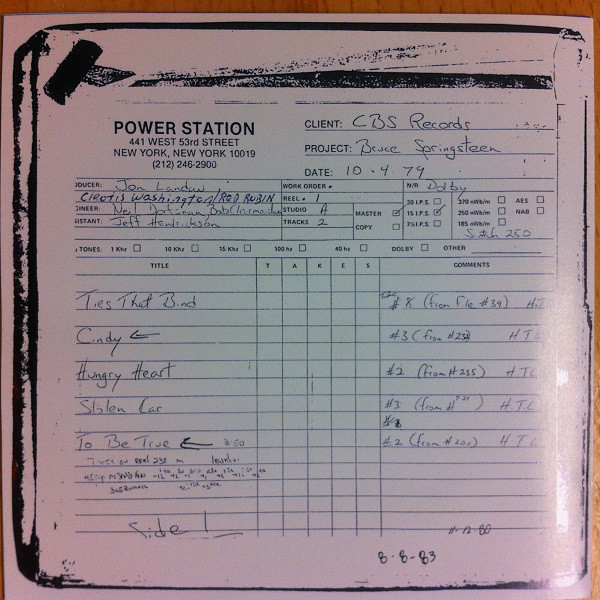 POWER STATION
441 WEST 53rd STREET
NEW YORK, NEW YORK 10019
(212) 246-2900
CLIENT: CBS Records
PROJECT: Bruce Springsteen
DATE: 10-4-79
ODUCER: Jon Landau
Cleotis Washington/ROD RUBIN
GINEER: Neil Dorfsman, Bob Clearmountain
SISTANT: Jeff Hendrickson
WORK ORDER #
REEL # 1
STUDIO A
TRACKS 2
MASTER
COPY
N/R Dolby
30 I.P.S. 370 nWb/m AES
15 I.P.S. 250 nWb/m NAB
7½ I.P.S. 185 nWb/m
Scotch 250
TONES: 1 Khz 10 Khz 15 Khz 100 hz 40 hz DOLBY OTHER
TITLE T A K E S COMMENTS
Ties That Bind #8 (from file #39) H.T.
Cindy ← #3 (from #232) H T L
Hungry Heart #2 (from #235) H T
Stolen Car #3 (from # H.T.L
To Be True ← 3:50 #2 (from #202) H T L
level
Side 1 11-12-80
8-8-83